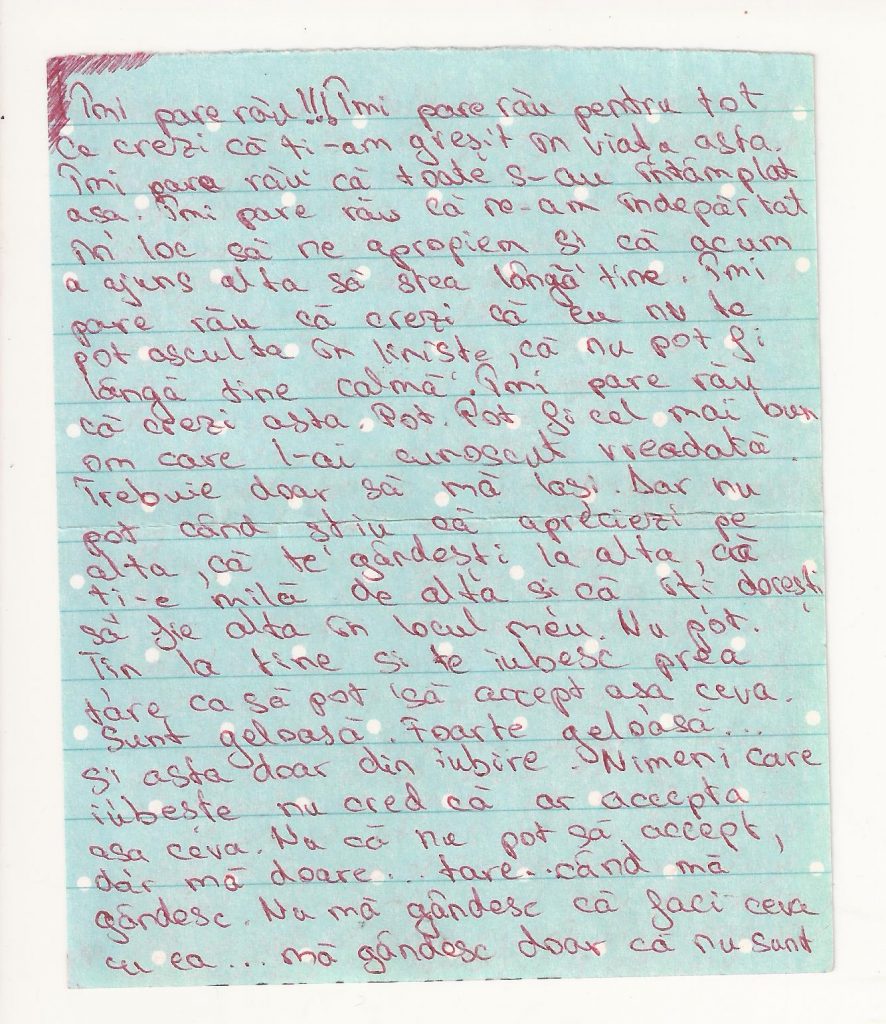 Îmi pare rău!!! Îmi pare rău pentru tot
Ce crezi că ti-am greșit în viața asta.
Îmi pare rău că toate s-au întâmplat
asa. Îmi pare rău că ne-am îndepărtat
în loc să ne apropiem si că acum
a ajuns alta să stea lângă tine. Îmi
pare rău că crezi că eu nu te
pot asculta în liniste, că nu pot fi
lângă tine calmă. Îmi pare rău
că crezi asta. Pot. Pot fi cel mai bun
om care l-ai cunoscut vreodată.
Trebuie doar să mă lași. Dar nu
pot când știu că apreciezi pe
alta, că te gândești la alta, că
ti-e milă de alta si că îti dorești
să fie alta în locul meu. Nu pot.
Țin la tine si te iubesc prea
tare ca să pot să accept asa ceva.
Sunt geloasă. Foarte geloasă...
Si asta doar din iubire. Nimeni care
iubeste nu cred că ar accepta
asa ceva. Nu că nu pot să accept,
dar mă doare... tare.. când mă
gândesc. Nu mă gândesc că faci ceva
cu ea... mă gândesc doar că nu sunt